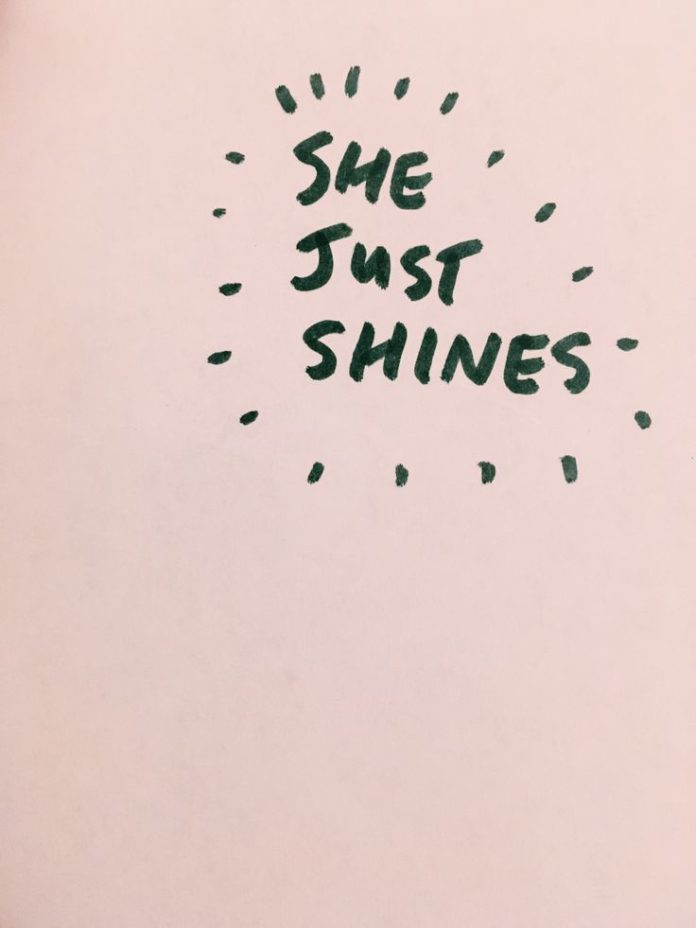 SHE
JuST
SHINES